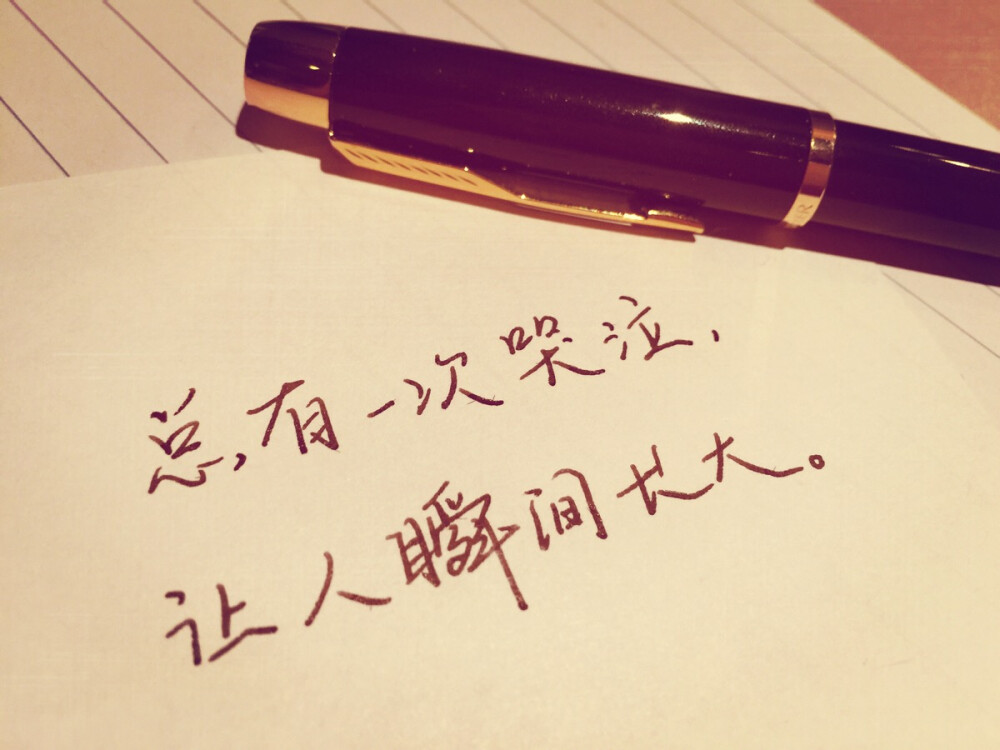 总有一次哭泣，
让人瞬间长大。